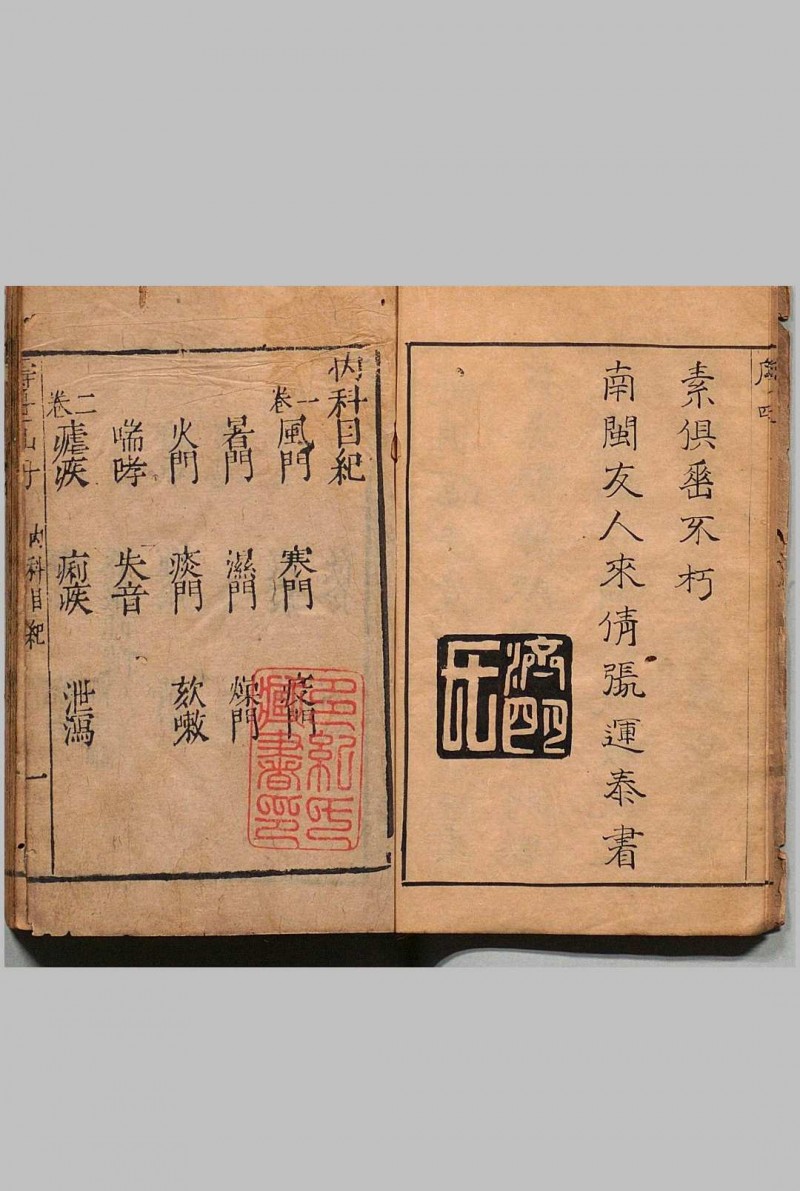 序 四
素俱垂不朽
南閩友人來倩張運泰書
內科目紀
卷一
風門 寒門 疫門
暑門 濕門 燥門
火門 痰門 欬嗽
喘哮 失音
卷二
瘧疾 痢疾 泄瀉
內科目紀 一
藏書印